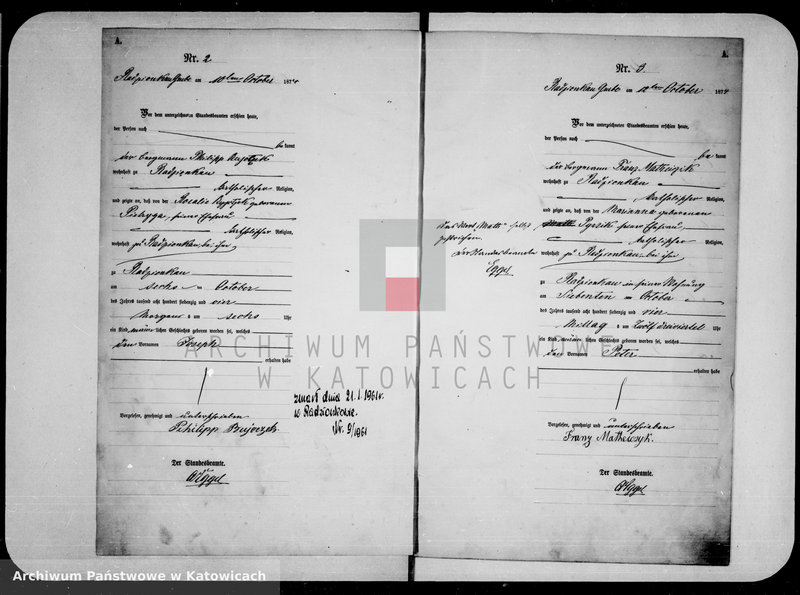 A.
Nr. 2
Radzionkau am 10ten October 1874
Vor dem unterzeichneten Standesbeamten erschien heute,
der Person nach
kannt
der Bergmann Philipp
wohnhaft zu Radzionkau
katholischer Religion,
und zeigte an, daß von der Rosalie geborenen
Pietryga, seiner Ehefrau
katholischer Religion,
wohnhaft zu Radzionkau bei ihm
zu Radzionkau
am sechs ten October
des Jahres tausend acht hundert siebenzig und vier
Morgens um sechs Uhr
ein Kind männlichen Geschlechts geboren worden sei, welches
den Vornamen Joseph
erhalten habe
Vorgelesen, genehmigt und unterschrieben
Philipp
Der Standesbeamte.
Eggel
zmarł dnia 21.I.1961 r.
w Radzionkowie.
Nr. 9/1961
A.
Nr. 3
Radzionkau am 10ten October 1874
Vor dem unterzeichneten Standesbeamten erschien heute,
der Person nach
be kannt
der Bergmann Franz
wohnhaft zu Radzionkau
katholischer Religion,
und zeigte an, daß von der Marianna geborenen
seiner Ehefrau
katholischer Religion,
wohnhaft zu Radzionkau bei ihm
zu Radzionkau in seiner Wohnung
am Siebenten October
des Jahres tausend acht hundert siebenzig und vier
Mittag um zwölf dreiviertel Uhr
ein Kind männlichen Geschlechts geboren worden sei, welches
den Vornamen Peter
erhalten habe
Vorgelesen, genehmigt und unterschrieben
Franz
Der Standesbeamte.
Eggel
Das Wort
gestrichen.
Der Standesbeamte
Eggel
ARCHIWUM PAŃSTWOWE
W KATOWICACH
Archiwum Państwowe w Katowicach